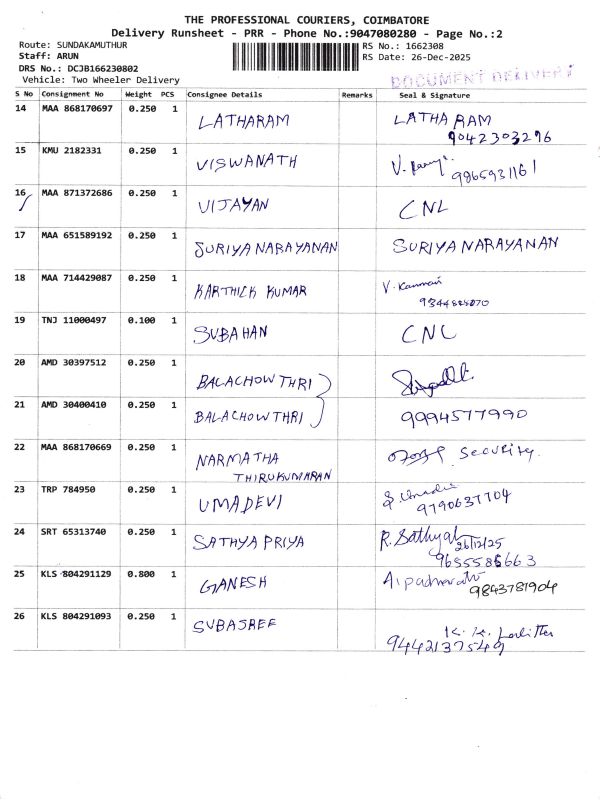 THE PROFESSIONAL COURIERS, COIMBATORE
Delivery Runsheet - PRR - Phone No.:9047080280 - Page No.:2
Route: SUNDAKAMUTHUR RS No.: 1662308
Staff: ARUN RS Date: 26-Dec-2025
DRS No.: DCJB166230802
DOCUMENT DELIVERY
Vehicle: Two Wheeler Delivery
S No Consignment No Weight PCS Consignee Details Remarks Seal & Signature
14 MAA 868170697 0.250 1 LATHARAM LATHA RAM
9042303296
15 KMU 2182331 0.250 1 VISWANATH V.
9865931161
16 MAA 871372686 0.250 1 VIJAYAN CNL
17 MAA 651589192 0.250 1 SURIYANARAYANAN SURIYANARAYANAN
18 MAA 714429087 0.250 1 KARTHICK KUMAR V. Kanmani
19 TNJ 11000497 0.100 1 SUBAHAN CNL
20 AMD 30397512 0.250 1 BALACHOWTHRI
21 AMD 30400410 0.250 1 BALACHOWTHRI 9994577990
22 MAA 868170669 0.250 1 NARMATHA Security.
THIRUKUMARAN
23 TRP 784950 0.250 1 UMADEVI
9790637704
24 SRT 65313740 0.250 1 SATHYA PRIYA R. Sathya
26/12/25
9655586663
25 KLS 804291129 0.800 1 GANESH
9843781904
26 KLS 804291093 0.250 1 SUBASREE K. K.
9442137549